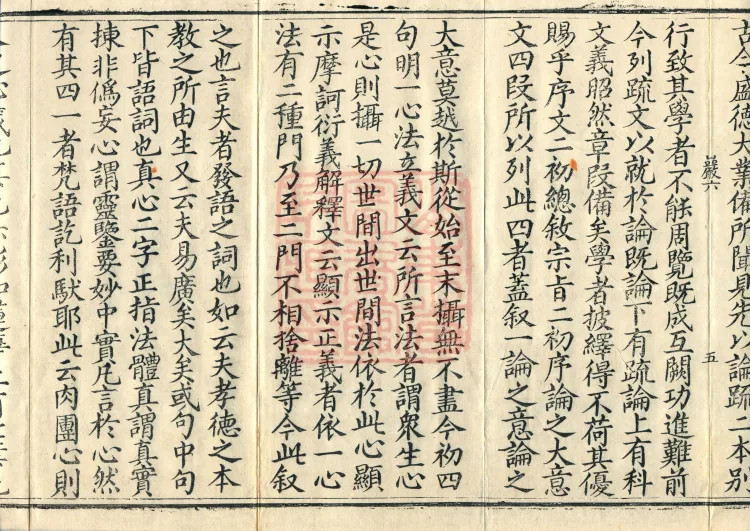 古今盛德大業備所聞見先以論疏二本別
行致其學者不能周覽既成互闕功進難前
今列疏文以就於論既論下有疏論上有科
文義昭然章段備矣學者披繹得不荷其優
賜乎序文二初總敘宗旨二初序論之大意
文四段所以列此四者蓋叙一論之意論之
大意莫越於斯從始至末攝無不盡今初四
句明一心法立義文云所言法者謂衆生心
是心則攝一切世間出世間法依於此心顯
示摩訶衍義解釋文云顯示正義者依一心
法有二種門乃至二門不相捨離等今此叙
之也言夫者發語之詞也如云夫孝德之本
教之所由生又云夫易廣矣大矣或句中句
下皆語詞也真心二字正指法體真謂真實
揀非僞妄心謂靈鑒要妙中實凡言於心然
有其四一者梵語訖利馱耶此云肉團心則
巖六
五